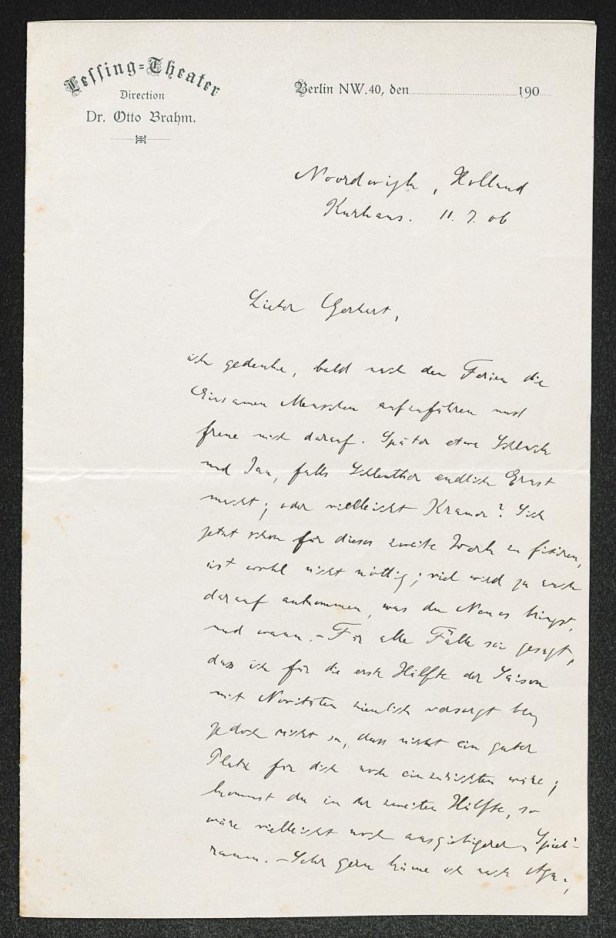 Lessing-Theater
Direction
Dr. Otto Brahm.
Berlin NW. 40, den 190
Noordwijk, Holland
Kurhaus. 11. 7. 06
Lieber Gerhart,
ich gedenke, bald nach den Ferien die
Einsamen Menschen aufzuführen und
freue mich darauf. Später etwa Schluck
und Jau, falls Schlenther endlich Ernst
macht; oder vielleicht Kramer? Sich
jetzt schon für dieses zweite Werk zu fixiren,
ist wohl nicht nöthig; viel wird ja auch
darauf ankommen, was du Neues bringst,
und wann. – Für alle Fälle sei gesagt,
dass ich für die erste Hälfte der Saison
mit Novitäten ziemlich versorgt bin,
jedoch nicht so, dass nicht ein guter
Platz für dich noch einzurichten wäre;
kommst du in der zweiten Hälfte, so
wäre vielleicht noch ausgiebigerer Spiel-
raum. – Sehr gern käme ich nach